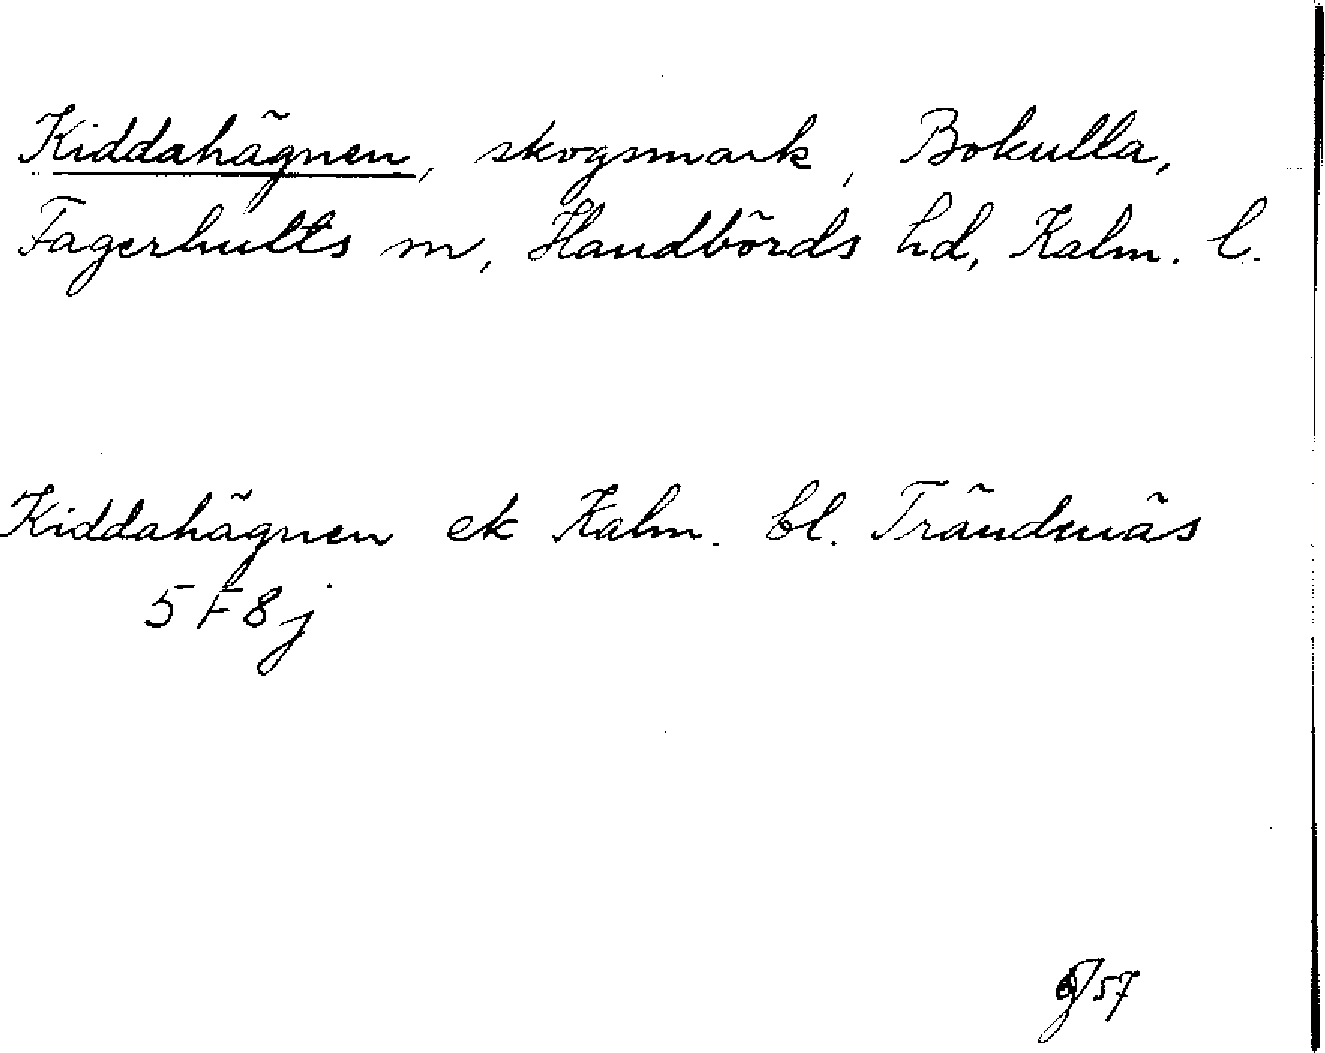 Kiddahägnen, skogsmark, Bokulla,
Fagerhults sn, Handbörds hd, Kalm. l.
Kiddahägnen ek Kalm. bl. Trändenäs
5F8j
57